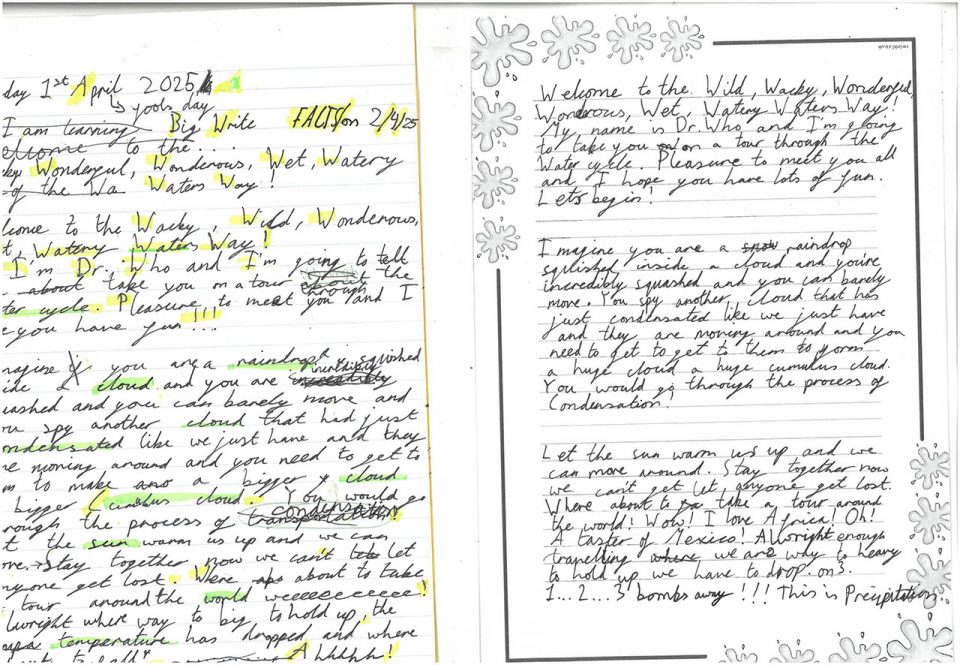 day 1st April 2025
↳ fools day
I am learning Big Write FACTS/on 2/4/25
elcome to the....
Wonderful, Wonderous, Wet, Watery
of the Wa Waters Way!
lcome to the Wacky, Wild, Wonderous,
t, Watery Waters Way!
I'm Dr. Who and I'm going to tell
about take you on a tour about through the
ter cycle. Pleasure, to meet you and I
e you have fun!!!
magine if you are a raindrop squished
ide a cloud and you are incredibly
uashed and you can barely move and
ou spy another cloud that had just
ondensated like we just have and they
re moving around and you need to get to
m to make a bigger cloud
bigger Cumulus cloud. You would go
rough the process of transportation condensation!
t the sun warm us up and we can
ove. Stay together now we can't let
nyone get lost. Where about to take
tour around the world weeeeeeeeeee!
lwright where way to big to hold up, the
temperature has dropped, and where
Ahhhhh!
Welcome to the Wild, Wacky, Wonderful,
Wonderous, Wet, Watery Waters Way!
My name is Dr. Who and I'm going
to take you on a tour through the
Water cycle. Pleasure to meet you all
and I hope you have lots of fun.
Lets begin!
Imagine you are a snow raindrop
squished inside a cloud and you're
incredibly squashed and you can barely
move. You spy another, cloud that has
just condensated like we just have
and they are moving around and you
need to get to get to them to form
a huge cloud a huge cumulus cloud.
You would go through the process of
Condensation!
Let the sun warm us up and we
can move around. Stay together now
we can't get let, anyone get lost.
Where about to take a tour around
the world! Wow! I love Africa! Oh!
A taster of Mexico! Allwright enough
travelling where we are way to heavy
to hold up we have to drop. on 3.
1...2...3 bombs away!!! This is Precipitation